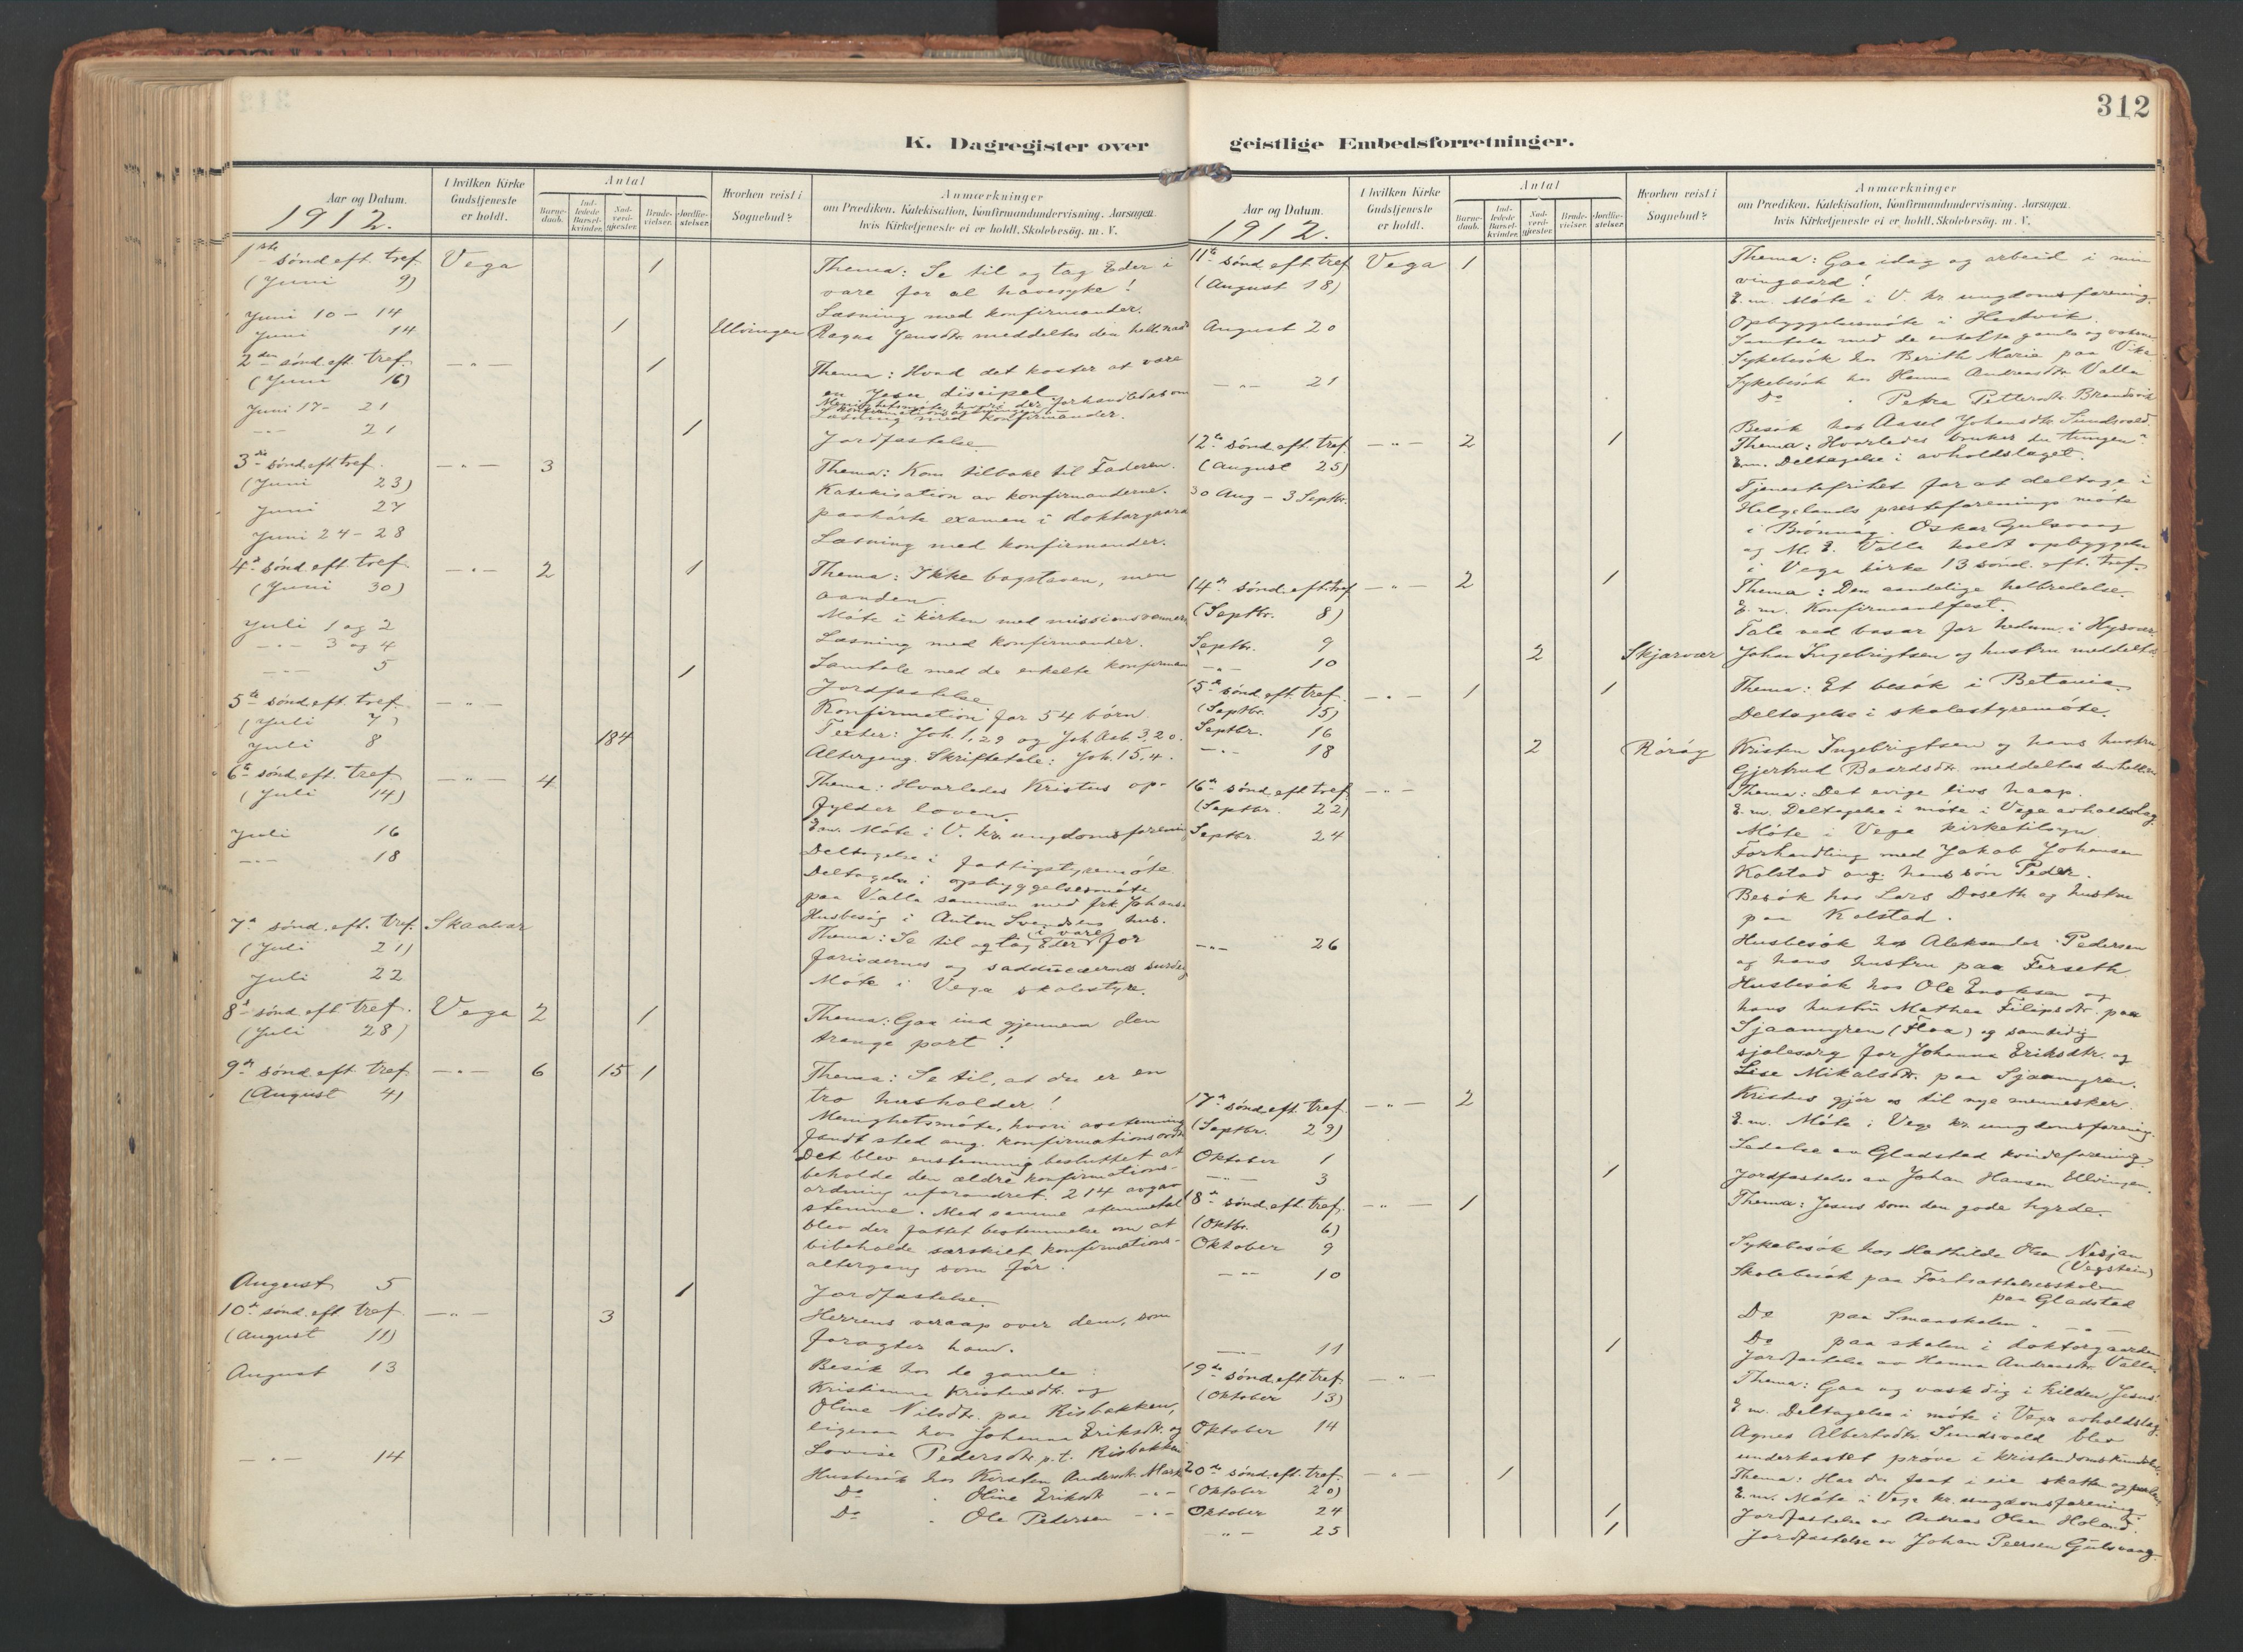 312
K. Dagregister over geistlige Embedsforretninger.
Aar og Datum.
1912.
I hvilken Kirke Gudstjeneste er holdt.
Antal
Barnedaab.
Indledede Barselkvinder.
Nadverdgjester.
Brudevielser.
Jordfæstelser.
Hvorhen reist i Sognebud?
Anmærkninger
om Prædiken, Katekisation, Konfirmandundervisning, Aarsagen
hvis Kirketjeneste ei er holdt, Skolebesøg, m. V.
1ste sönd. eft. tref. Vega 1 Thema: Se til og tag Eder i
(Juni 9) vare for al havesyke!
Juni 10 - 14 Læsning med konfirmander.
Juni 14 1 Ulvingen Ragna Jensdtr. meddeltes den hell. nadv
2den sönd. eft. tref. -"- 1 Thema: Hvad det koster at være
(Juni 16) en Jesu discipel.
Menighetsmöte, hvori der forhandledes om
konfirmationsordningen.
Juni 17 - 21 Læsning med konfirmander.
-"- 21 1 Jordfæstelse.
3die sönd. eft. tref. -"- 3 Thema: Kom tilbake til Faderen.
(Juni 23) Katekisation av konfirmanderne.
Juni 27 paahörte examen i doktorgaard
Juni 24 - 28 Læsning med konfirmander.
4de sönd. eft. tref. -"- 2 1 Thema: Ikke bogstaven, men
(Juni 30) aanden.
Juli 1 og 2 Möte i kirken med missionsvenner
-"- 3 og 4 Læsning med konfirmander.
-"- 5 1 Samtale med de enkelte konfirman
Jordfæstelse.
5te sönd. eft. tref. -"- Konfirmation for 54 börn.
(Juli 7) Texter: Joh. 1,29 og Joh. Aab. 3,20.
Juli 8 184 Altergang. Skriftetale: Joh. 15,4.
6te sönd. eft. tref. -"- 4 Thema: Hvorledes Kristus op-
(Juli 14) fylder loven.
E.m. Möte i V. kr. ungdomsforening
Juli 16 Deltagelse i fattigstyremöte
-"- 18 Deltagelse i opbyggelsesmöte
paa Valla sammen med frk. Johans
Husbesög i Anton Svendsens hus.
7de sönd. eft. tref. Skaalvær Thema: Se til og tag Eder i vare for
(Juli 21) farisæernes og sadducæernes surdeig
Juli 22 Möte i Vega skolestyre.
8de sönd. eft. tref. Vega 2 1 Thema: Gaa ind gjennem den
(Juli 28) trange port!
9de sönd. eft. tref. -"- 6 15 1 Thema: Se til, at du er en
(August 4) tro husholder!
Menighetsmöte, hvori avstemning
fandt sted ang. konfirmationsordn
Det blev enstemmig besluttet at
beholde den ældre konfirmations-
ordning uforandret. 214 avgav
stemme. Med samme stemmetal
blev der fattet bestemmelse om at
bibeholde særskilt konfirmations-
altergang som för.
August 5 1 Jordfæstelse.
10de sönd. eft. tref. -"- 3 Herrens veraap over dem, som
(August 11) foragter ham.
August 13 Besök hos de gamle:
Kristianna Kristensdtr. og
Oline Nilsdtr. paa Risbakken,
ligesaa hos Johanna Eriksdtr. og
Lovise Pedersdtr. p.t. Risbakken
-"- 14 Husbesök hos Kirsten Andersdtr. Mark
Do " Oline Eriksdtr. -"-
Do " Ole Pedersen -"-
Aar og Datum.
1912.
I hvilken Kirke Gudstjeneste er holdt.
Antal
Barnedaab.
Indledede Barselkvinder.
Nadverdgjester.
Brudevielser.
Jordfæstelser.
Hvorhen reist i Sognebud?
Anmærkninger
om Prædiken, Katekisation, Konfirmandundervisning, Aarsagen
hvis Kirketjeneste ei er holdt, Skolebesøg, m. V.
11te sönd. eft. tref. Vega 1 Thema: Gaa idag og arbeid i min
(August 18) vingaard!
E.m. Möte i V. kr. ungdomsforening.
August 20 Opbyggelsesmöte i Hestvik.
Samtale med de enkelte gamle og voksne
Sykebesök hos Berith Marie paa Vika
-"- 21 Sykebesök hos Hanna Andreasdtr. Valla
Do " Petra Pettersdtr. Brandsvik
Besök hos Assel Johansdtr. Sundsvold.
12te sönd. eft. tref. -"- 2 1 Thema: Hvorledes bruker du tungen?
(August 25) E.m. Deltagelse i avholdslaget.
30 Aug - 3 Septbr. Tjenestefrihet for at deltage i
Helgelands presteforenings möte
i Brönnöy. Oskar Gulsvaag
og M. E. Valla holdt opbyggelse
i Vega kirke 13 sönd. eft. tref.
14de sönd. eft. tref. -"- 2 1 Thema: Den aandelige helbredelse.
(Septbr. 8) E.m. Konfirmandfest.
Septbr. 9 Tale ved basar for hedm. i Hysvær.
-"- 10 2 Skjærvær Johan Ingebrigtsen og hustru meddeltes
15de sönd. eft. tref. -"- 1 1 Thema: Et besök i Betania.
(Septbr. 15)
Septbr. 16 Deltagelse i skolestyremöte.
-"- 18 2 Röröy Kristen Ingebrigtsen og hans hustru
Gjertrud Baardsdtr. meddeltes den hell. n.
16de sönd. eft. tref. -"- Thema: Det evige livs haap.
(Septbr. 22) E.m. Deltagelse i möte i Vega avholdslag.
Septbr. 24 Möte i Vega kirketilsyn.
Forhandling med Jakob Johansen
Kolstad ang. hans sön Peder.
Besök hos Lars Doseth og hustru
paa Kolstad.
-"- 26 Husbesök hos Aleksander Pedersen
og hans hustru paa Ferseth
Husbesök hos Ole Enoksen og
hans hustru Mathea Filipsdtr. paa
Sjaamyren (Floa) og samtidig
sjælesorg for Johanna Eriksdtr. og
Lise Mikalsdtr. paa Sjaamyren.
17de sönd. eft. tref. -"- 2 Kristus gjör os til nye mennesker.
(Septbr. 29) E.m. Möte i Vega kr. ungdomsforening.
Oktober 1 Ledelse av Gladstad kvindeforening.
-"- 3 1 Jordfæstelse av Johan Hansen Ulvingen.
18de sönd. eft. tref. -"- 1 Thema: Jesus som den gode hyrde.
(Oktbr. 6)
Oktober 9 Sykebesök hos Mathilde Olsen Nesjan
(Vegstein)
-"- 10 Skolebesök paa Fortsættelsesskolen
paa Gladstad
Do paa Smaaskolen -"-
Do paa skolen i doktorgaarden
-"- 11 1 Jordfæstelse av Hanna Andreasdtr. Valla.
19de sönd. eft. tref. -"- Thema: Gaa og vask dig i kilden Jesus!
(Oktober 13) E.m. Deltagelse i möte i Vega avholdslag.
Oktober 14 Agnes Albertsdtr. Sundsvold blev
underkastet pröve i kristendomskundskap.
20de sönd. eft. tref. -"- 1 Thema: Har du faat i eie skatten og perlen,
(Oktober 20) E.m. Möte i Vega kr. ungdomsforening.
Oktober 24 1 Jordfæstelse av Andreas Olsen Holand.
-"- 25 1 Jordfæstelse av Johan Peersen Gulsvaag.